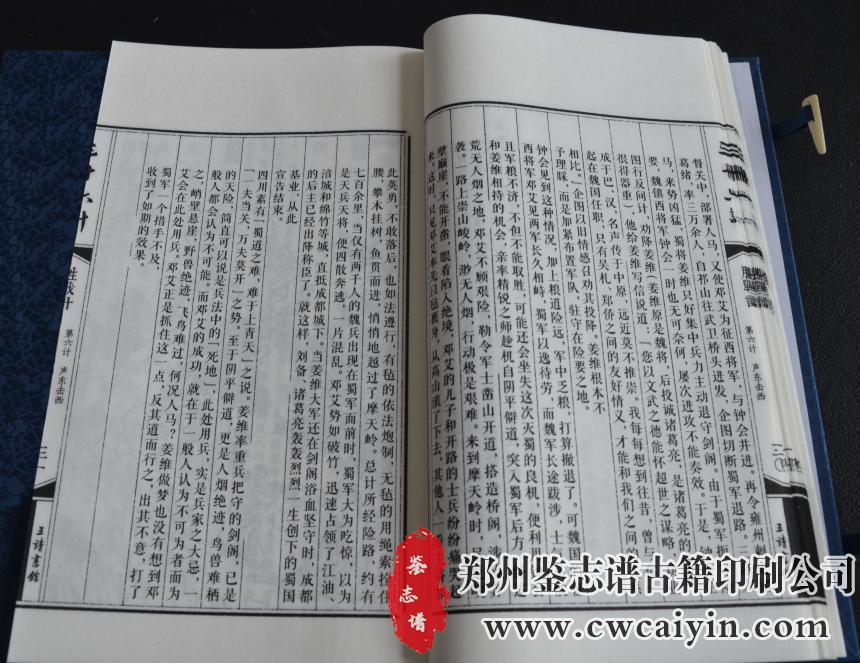 督关中，部署人马，又使邓艾为征西将军，与钟会并进。再令雍州刺
葛绪，率三万余人，自祁山往武卫桥头进发，企图切断蜀军退路。三
马，来势凶猛，蜀将姜维只好集中兵力主动退守剑阁，由于蜀军扼
要，魏镇西将军钟会一时也无可奈何，屡次进攻不能奏效。于是，钟
图行反间计，劝降姜维（姜维原是魏将，后投诚诸葛亮，是诸葛亮的
很得器重），他给姜维写信说道：“您以文武之德能怀超世之谋略，
成于巴、汉，名声传于中原，远近莫不推崇。我每每想到往昔，曾与
起在魏国任职，只有吴札、郑侨之间的友好情义，才能和我们之间
相比。”企图以旧情感召劝其投降。姜维根本不
予理睬，而是加紧布置军队，驻守在险要之地。
钟会见到这种情况，加上粮道险远，军中乏粮，打算撤退了。可魏国
西将军邓艾见两军长久相峙，蜀军以逸待劳，而魏军长途跋涉，士
且军粮不济，不但不能取胜，可能还会坐失这次灭蜀的良机，便利用
和姜维相持的机会，亲率精锐之师趁机自阴平僻道，突入蜀军后方
荒无人烟之地。邓艾不顾艰险，勒令军士凿山开道，搭造桥阁，涉
袭。一路上崇山峻岭，渺无人烟，行动极是艰难。来到摩天岭时，只
壁巅崖，不能开凿，眼看陷入绝境，邓艾的儿子和开路的士兵纷纷痛哭
来。这时，只见邓艾率先以毡裹身，从高山滚了下去，其他人一
胜战计
第六计 声东击西
三
三诗书馆
此英勇，不敢落后，也如法遵行，有毡的依法炮制，无毡的用绳索拴住
腰，攀木挂树，鱼贯而进，悄悄地越过了摩天岭。总计所经险路约有
七百余里，当仅有两千人的魏兵出现在蜀军面前时，蜀军大为吃惊，以为
是天兵天将，便四散奔逃，一片混乱。邓艾势如破竹，迅速占领了江油、
涪城和绵竹等城，直抵成都城下，当姜维大军还在剑阁浴血坚守时，成都
的后主已经出降称臣了。就这样，刘备、诸葛亮轰轰烈烈一生创下的蜀国
基业，从此
宣告结束。
四川素有“蜀道之难，难于上青天”之说。姜维率重兵把守的剑阁，已是
“一夫当关，万夫莫开”之势。至于阴平僻道，更是人烟绝迹，鸟兽难栖
的天险，简直可以说是兵法中的“死地”，此处用兵，实是兵家之大忌，一
般人都会认为不可能。而邓艾的成功，就在于一般人认为不可为者而为
之，峭壁悬崖，野兽绝迹，飞鸟难过，何况人马？姜维做梦也没有想到邓
艾会在此处用兵。邓艾正是抓住这一点，反其道而行之，出其不意，打了
蜀军一个措手不及，
收到了如期的效果。
鉴志谱
郑州鉴志谱古籍印刷公司
www.cwcaiyin.com